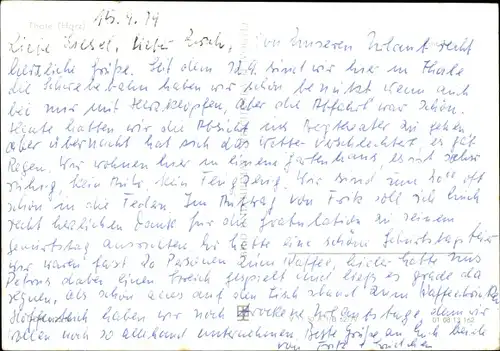 Thale (Harz)
15.9.79
Liebe Liesel, lieber Erich, von unserem Urlaub recht
herzliche Grüße. Seit dem 12.9. sind wir hier in Thale
die Schwebebahn haben wir schon benützt wenn auch
bei mir mit Herzklopfen, aber die Abfahrt war schön.
Heute hatten wir die Absicht ins Bergtheater zu gehen,
aber übernacht hat sich das Wetter verschlechtert, es gab
Regen. Wir wohnen hier in einem Gartenhaus, es ist sehr
ruhig, kein Auto, kein Flugzeug. Wir sind um 20 oft
schon in die Federn. Im Auftrag von Fritz soll ich Euch
recht herzlichen Dank für die Gratulation zu seinem
Geburtstag ausrichten. Er hatte eine schöne Geburtstagsfeier
wir waren fast 20 Personen zum Kaffee, leider hatte uns
Petrus dabei einen Streich gespielt und ließ es grade da
regnen, als schon alles auf den Tisch stand zum Kaffeetrinken
Hoffentlich haben wir noch trockene Urlaubstage, denn wir
wollen noch so allerhand unternehmen. Beste Grüße an Euch beide
von Fritz +
01 08 12 162